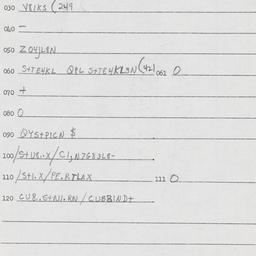 030 VRIKS (249
040 —
050 ZOYJLSN
060 S+TE4KL QPL S+TE4KLSN (42) 061 0
070 +
080 0
090 QYS+PICN $
100 /S+UR..X/CI,N7G83L8-
110 /S+I.X/PE.RTLAX 111 0
120 CUR..S+NI.RN/CUBBIND+